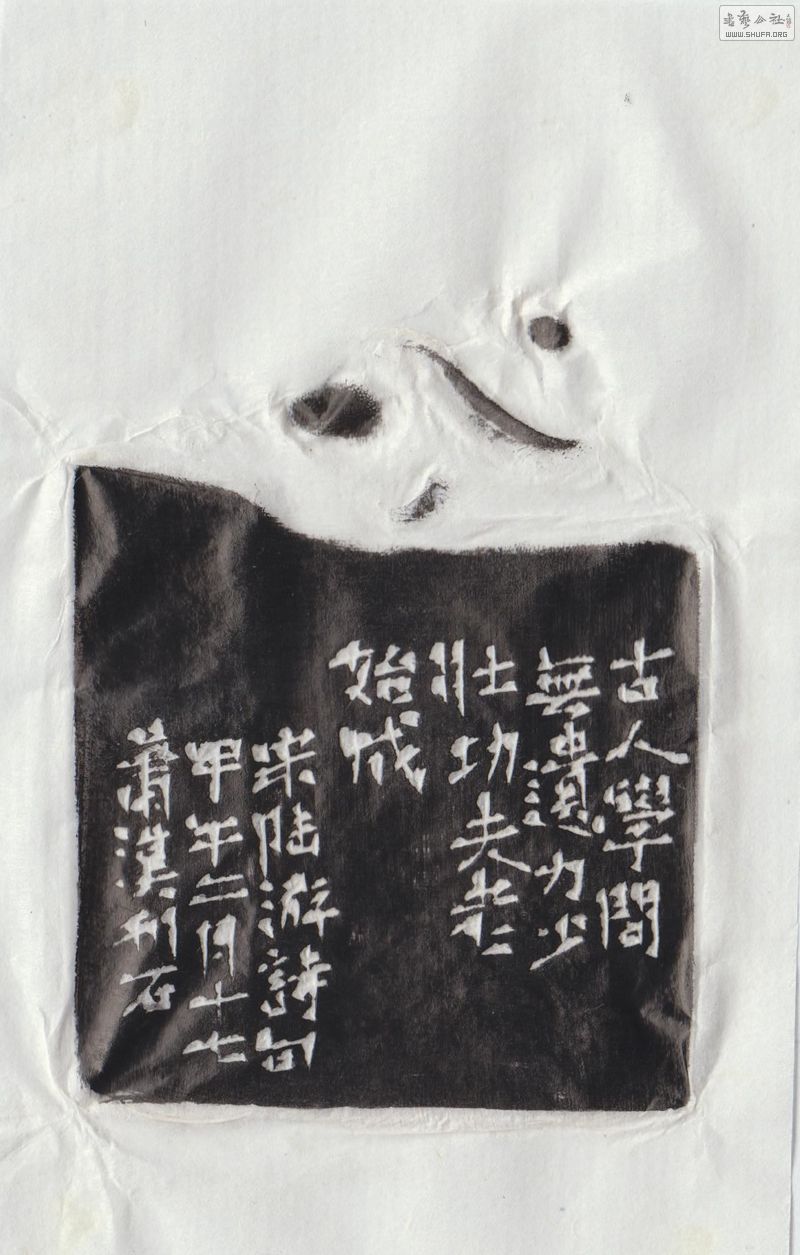 書藝公社
WWW.SHUFA.ORG
古人學問
無遺力少
壯功夫老
始成
宋陸游詩句
甲午二月十七
蕭漢石